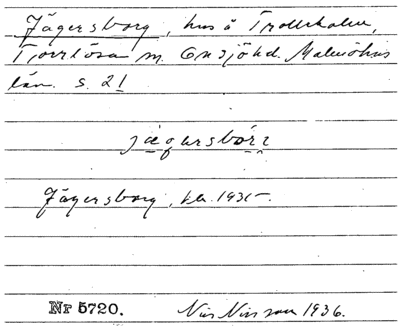 Jägersborg, hus å Trolleholm,
Torrlösa sn. Onsjöhd. Malmöhus
län. s. 21
jägersbårr
Jägersborg, ek. 1935.
Nr 5720.
Nils Nilsson 1936.